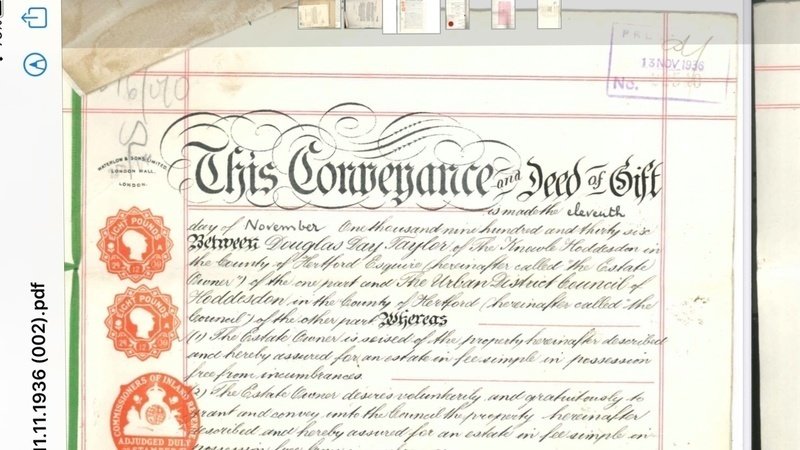 11.11.1936 (002).pdf
P.R.L.
13 NOV 1936
No.
WATERLOW & SONS LIMITED
LONDON WALL,
LONDON.
This Conveyance and Deed of Gift
is made the eleventh
day of November One thousand nine hundred and thirty six
Between Douglas Day Taylor of The Knowle Hoddesdon in
the County of Hertford Esquire (hereinafter called "the Estate
Owner") of the one part and The Urban District Council of
Hoddesdon in the County of Hertford (hereinafter called "the
Council") of the other part Whereas
(1) The Estate Owner is seised of the property hereinafter described
and hereby assured for an estate in fee simple in possession
free from incumbrances.
(2) The Estate Owner desires voluntarily and gratuitously to
grant and convey unto the Council the property hereinafter
described and hereby assured for an estate in fee simple in
possession free
EIGHT POUNDS
A
EIGHT POUNDS
A
COMMISSIONERS OF INLAND REVENUE
ADJUDGED DULY
STAMPED